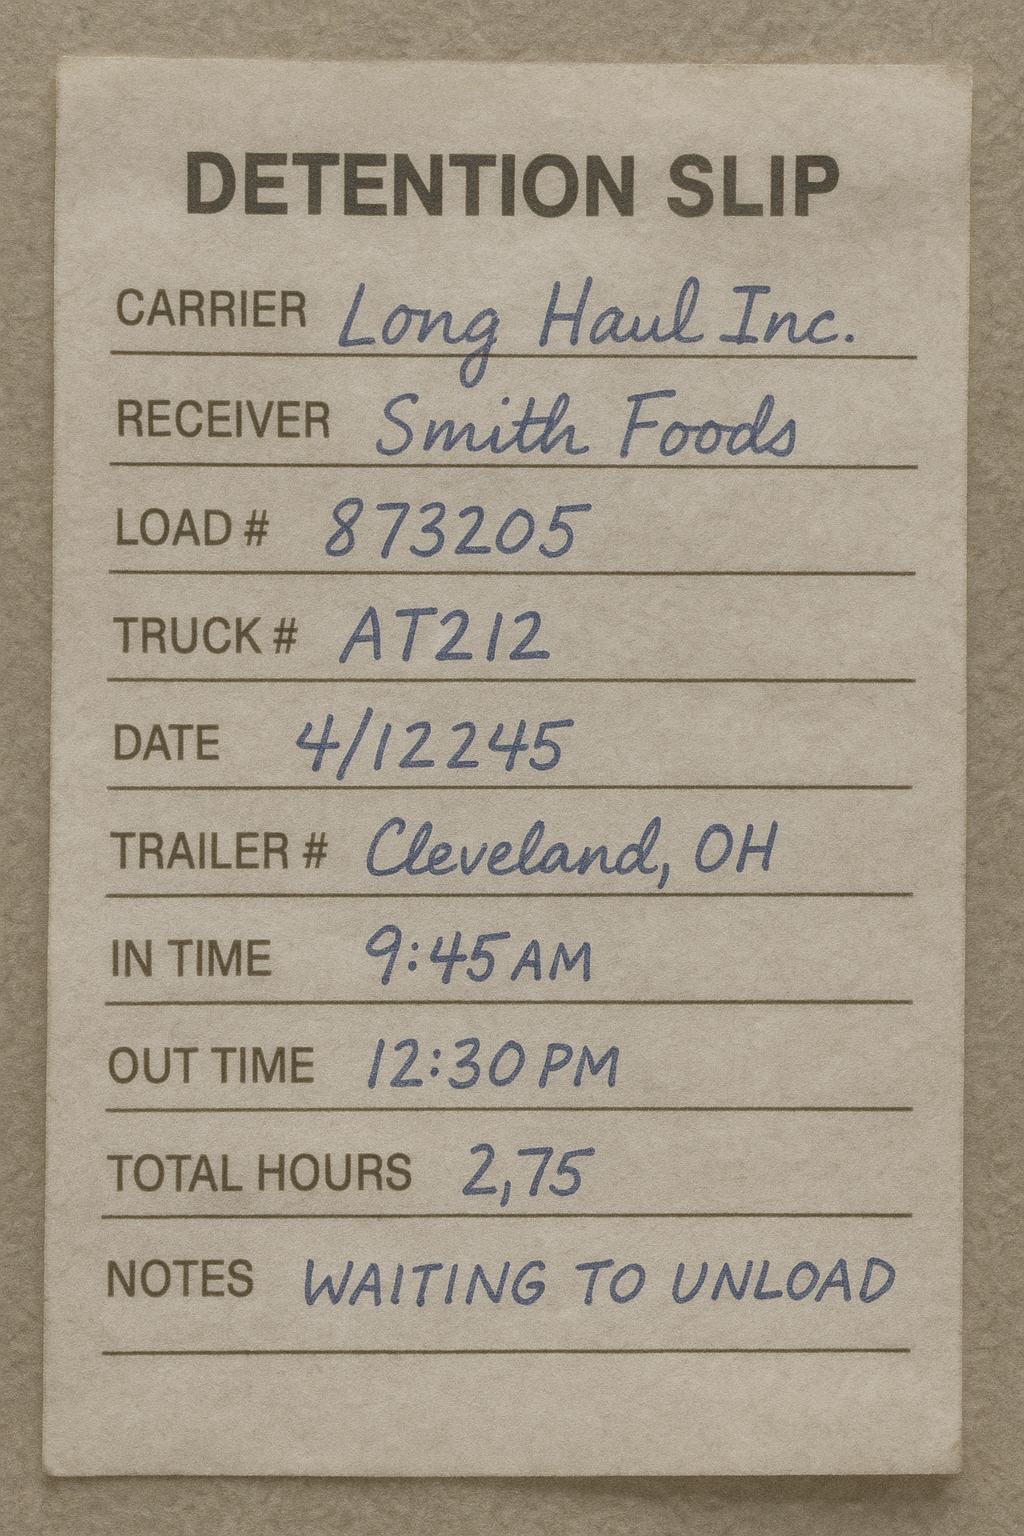 DETENTION SLIP
CARRIER Long Haul Inc.
RECEIVER Smith Foods
LOAD # 873205
TRUCK # AT212
DATE 4/12245
TRAILER # Cleveland, OH
IN TIME 9:45 AM
OUT TIME 12:30 PM
TOTAL HOURS 2,75
NOTES WAITING TO UNLOAD